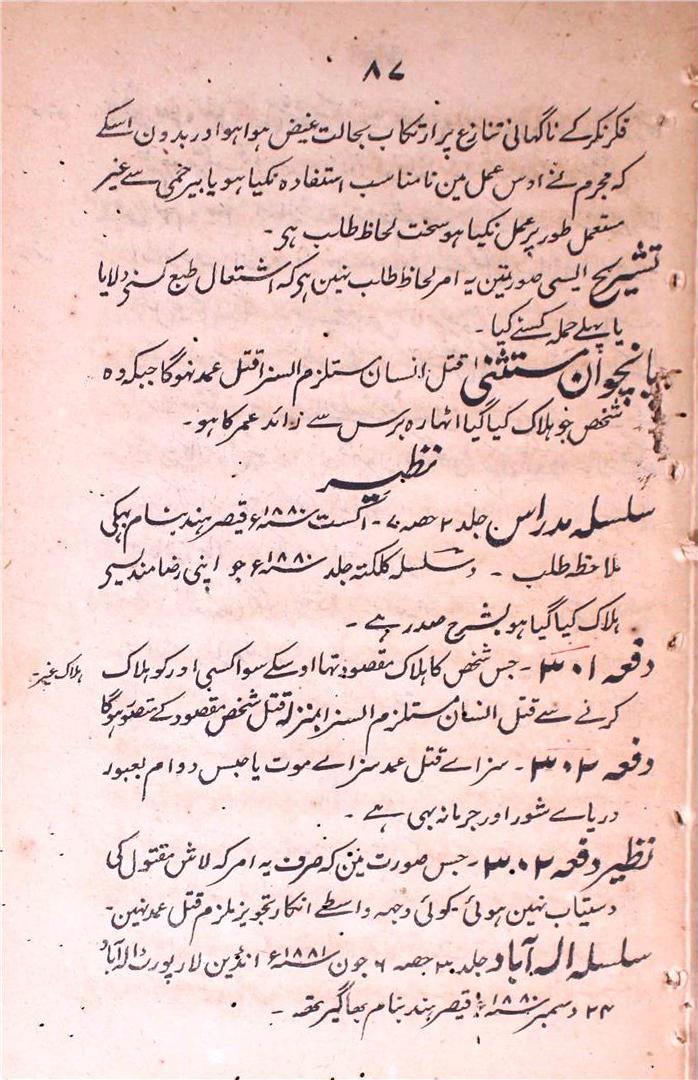 ۸۷
فکر نکر کے ناگہانی تنازع پر ارتکاب بحالت غیض ہوا ہو اور بدون اسکے
کہ مجرم نے اوس عمل مین نامناسب استفادہ نکیا ہو یا بیرحمی سے غیر
مستعمل طور پر عمل نکیا ہو سخت لحاظ طلب ہی۔
تشریح ایسی صورتین یہ امر لحاظ طلب نہین ہی کہ اشتعال طبع کسنے دلایا
یا پہلے حملہ کسنے کیا۔
پانچوان مستثنی قتل انسان مستلزم السزا قتل عمد نہوگا جبکہ وہ
شخص جو ہلاک کیا گیا اٹھارہ برس سے زائد عمر کا ہو۔
نظیر
سلسلہ مدراس جلد ۲ حصہ ۷۔ اگست سنہ ۱۸۸۰ء قیصر ہند بنام
ملاحظہ طلب۔ وسلسلہ کلکتہ جلد سنہ ۱۸۸۰ء جو اپنی رضامندیسے
ہلاک کیا گیا ہو بشرح صدر ہے۔
دفعہ ۳۰۱۔ جس شخص کا ہلاک مقصود تھا اوسکے سوا کسی اور کو ہلاک
ہلاک غیر
کرنے سے قتل انسان مستلزم السزا بمنزلہ قتل شخص مقصود کے متصور ہوگا
دفعہ ۳۰۲۔ سزاے قتل عمد سزاے موت یا حبس دوام بعبور
دریاے شور اور جرمانہ بھی ہے۔
نظیر دفعہ ۳۰۲۔ جس صورت مین کہ صرف یہ امر کہ لاش مقتول کی
دستیاب نہین ہوئی کوئی وجہہ واسطے انکار تجویز ملزم قتل عمد نہین۔
سلسلہ الہ آباد جلد ۳ حصہ ۶ جون سنہ ۱۸۸۱ء انڈین لا رپورٹ الہ آباد
۲۴ دسمبر سنہ ۱۸۸۰ء قیصر ہند بنام بھاگیرتھ۔